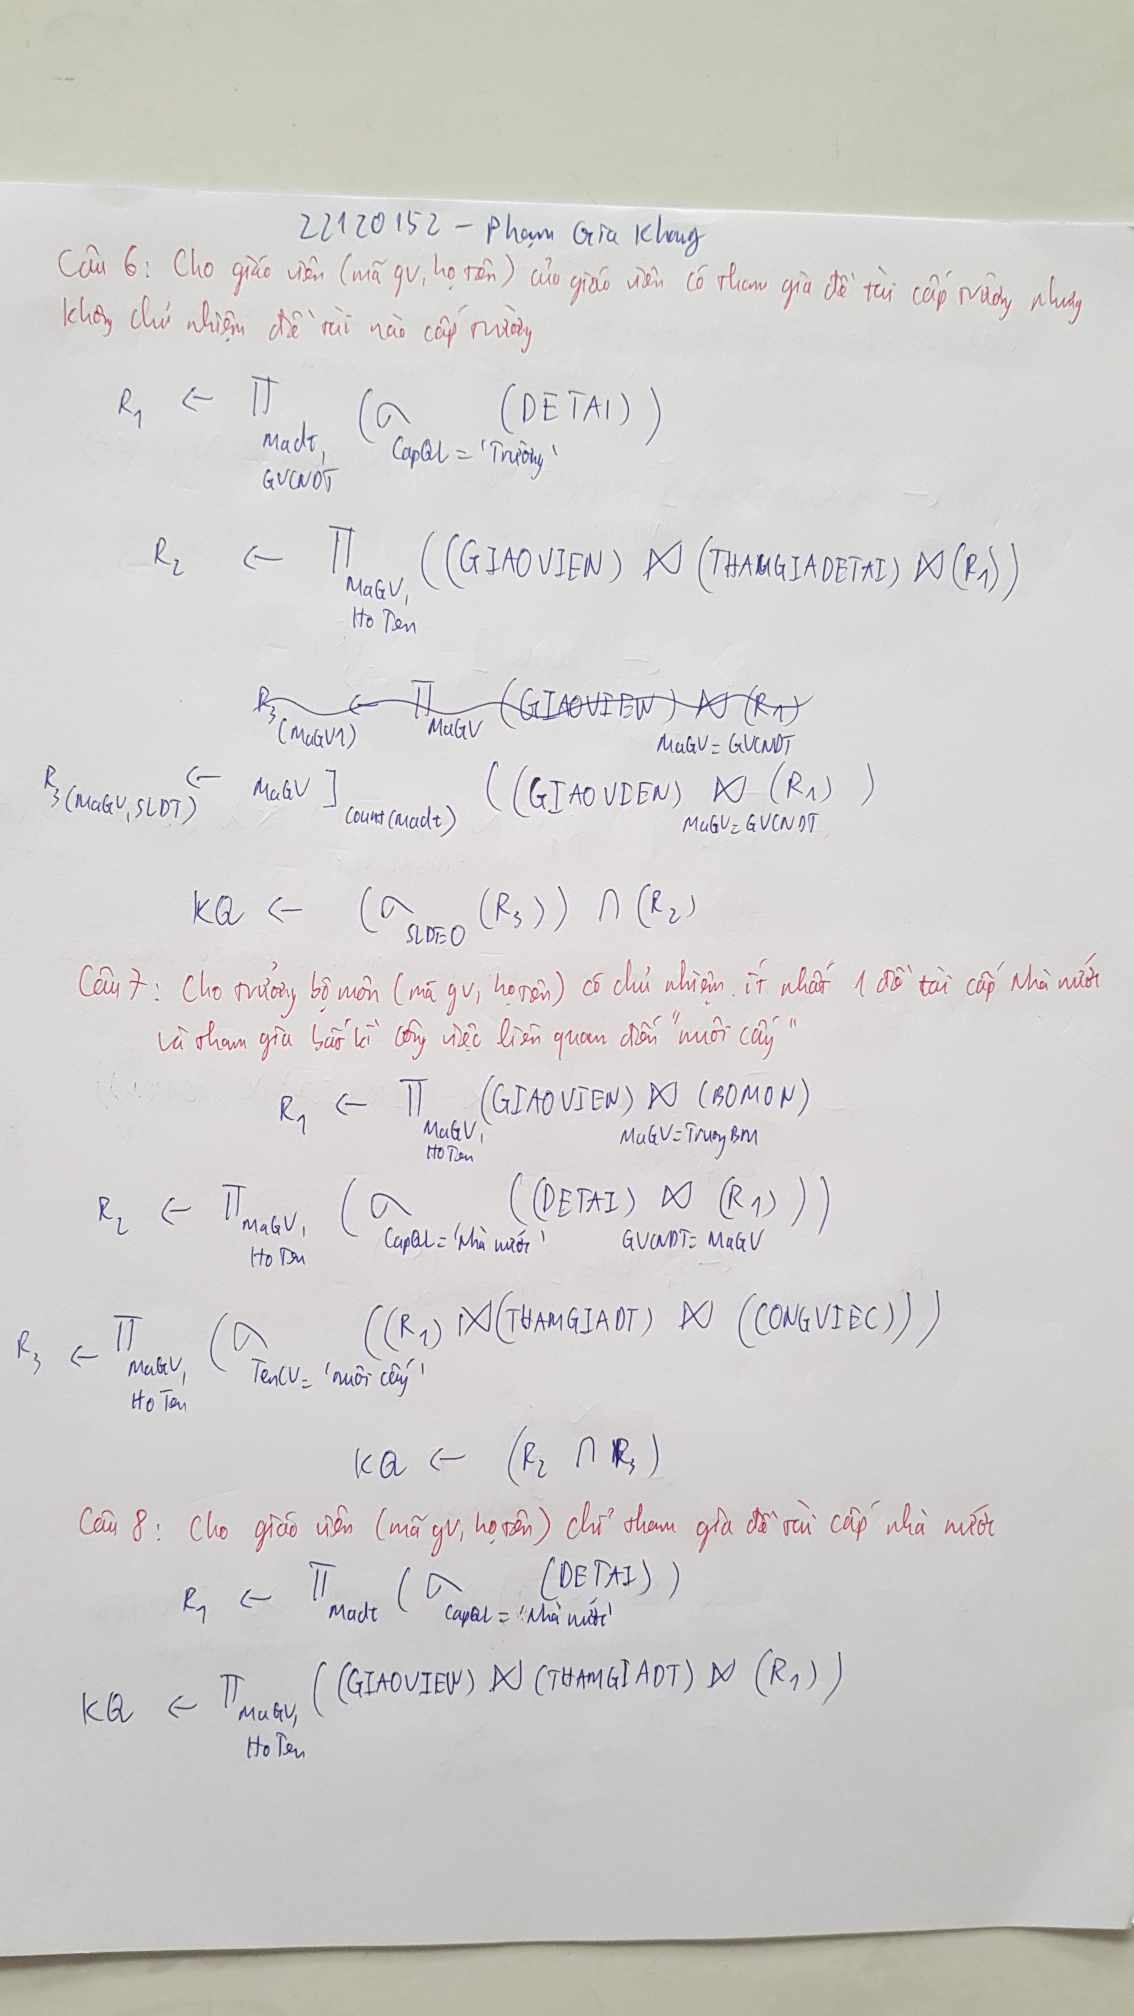 22120152 - Phạm Gia Khang
Câu 6: Cho giáo viên (mã gv, họ tên) của giáo viên có tham gia đề tài cấp trường nhưng
không chủ nhiệm đề tài nào cấp trường
R1 ← Π Madt, GVCNDT (σ CapQL = 'Trường' (DETAI))
R2 ← Π MaGV, HoTen ((GIAOVIEN) ⋈ (THAMGIADETAI) ⋈ (R1))
R3 (MaGV1) ← Π MaGV (GIAOVIEN) ⋈ MaGV = GVCNDT (R1)
R3 (MaGV, SLDT) ← MaGV ℑ count(Madt) ((GIAOVIEN) ⋈ MaGV = GVCNDT (R1))
KQ ← (σ SLDT=0 (R3)) ∩ (R2)
Câu 7: Cho trưởng bộ môn (mã gv, họ tên) có chủ nhiệm ít nhất 1 đề tài cấp Nhà nước
và tham gia bất kì công việc liên quan đến "nuôi cấy"
R1 ← Π MaGV, HoTen (GIAOVIEN) ⋈ MaGV = TruongBM (BOMON)
R2 ← Π MaGV, HoTen (σ CapQL = 'Nhà nước' ((DETAI) ⋈ GVCNDT = MaGV (R1)))
R3 ← Π MaGV, HoTen (σ TenCV = 'nuôi cấy' ((R1) ⋈ (THAMGIADT) ⋈ ((CONGVIEC))))
KQ ← (R2 ∩ R3)
Câu 8: Cho giáo viên (mã gv, họ tên) chỉ tham gia đề tài cấp nhà nước
R1 ← Π Madt (σ CapQL = 'Nhà nước' (DETAI))
KQ ← Π MaGV, HoTen ((GIAOVIEN) ⋈ (THAMGIADT) ⋈ (R1))